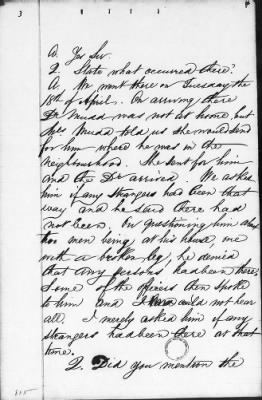 3
A. Yes Sir.
Q. State what occurred there?
A. We went there on Tuesday the
18th of April. On arriving there
Dr Mudd was not at home, but
Mrs Mudd told us she would send
for him where he was in the
neighbourhood. She sent for him
and the Dr arrived. We asked
him if any strangers had been that
way and he said there had
not been. On questioning him about
two men being at his house, one
with a broken leg, he denied
that any persons had been there.
Some of the officers then spoke
to him and I could not hear
all. I merely asked him if any
strangers had been there at that
time.
Q. Did you mention the